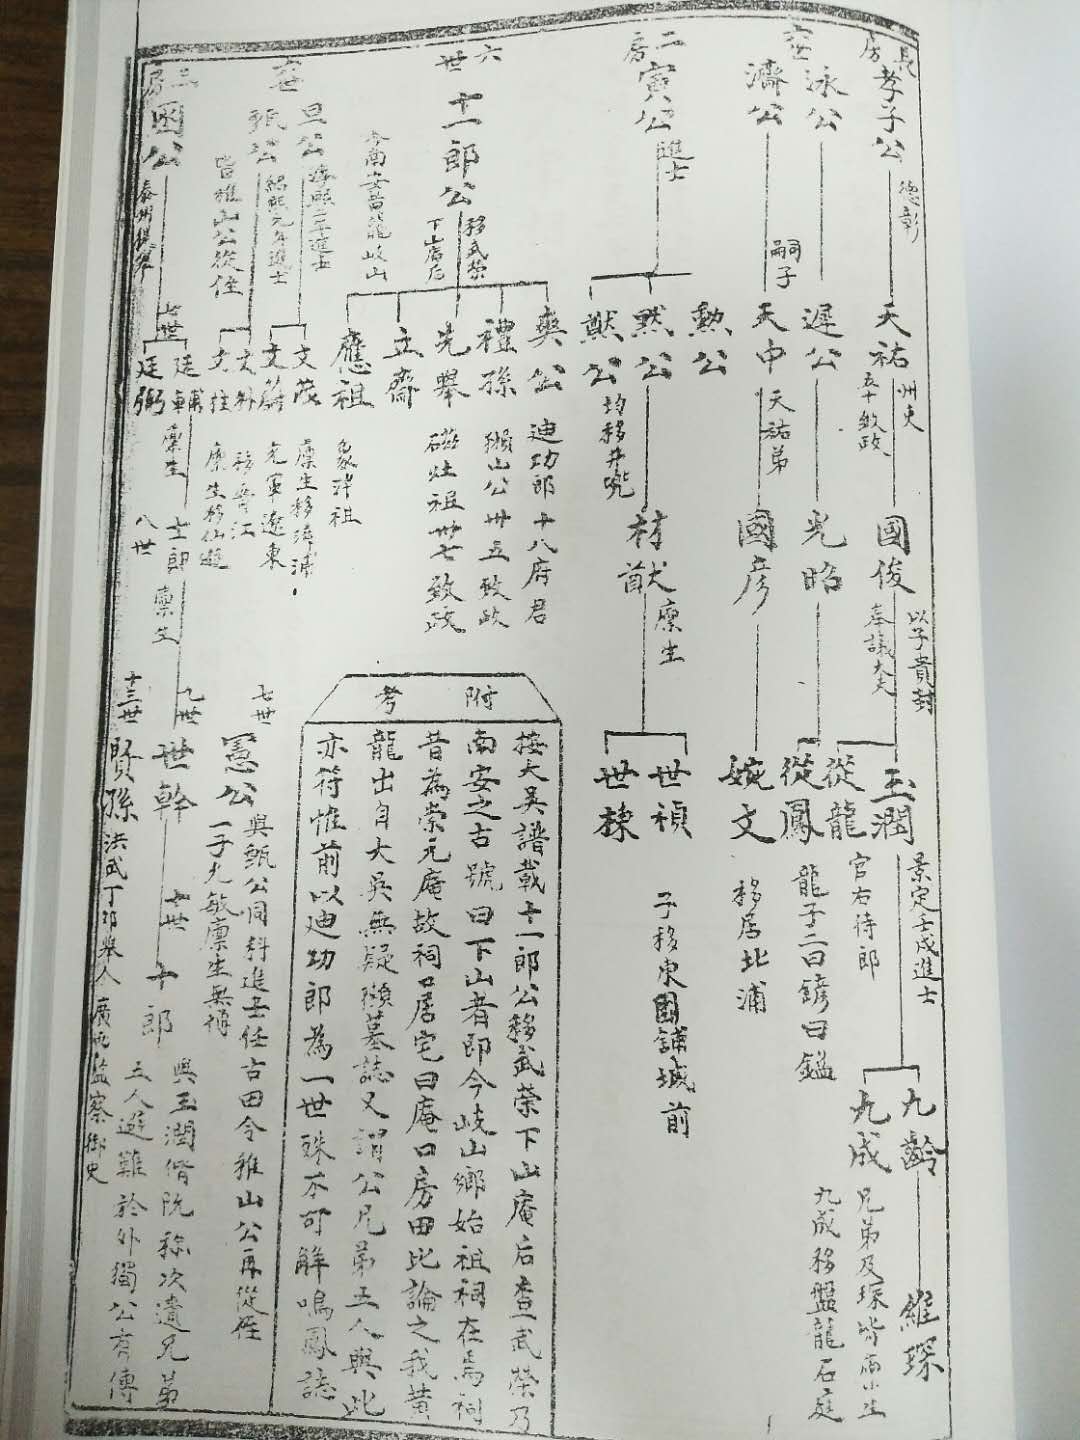 長房
孝子公
德彰
天祐
州史
五十致政
國俊
以子貴封
奉議大夫
玉潤
景定壬戌進士
九齡
維琛
九成
兄弟及琛皆雨山生
九成移盤龍石庭
泳公
遲公
光昭
從龍
官右侍郎
從鳳
龍子二曰鏐曰鑑
濟公
嗣子
天中
天祐弟
國彥
婉文
移居北浦
二房
寅公
進士
勲公
黙公
猷公
均移井兜
材猷
廪生
世禎
世棟
子移東園誧城前
六世
十一郎公
移武榮
下山庵后
今南安普龍岐山
奭公
迪功郎十八府君
禮孫
獺山公卅五致政
先舉
磁灶祖卅七致政
立齋
應祖
象洋祖
附考
按大吳譜載十一郎公移武荣下山庵后查武榮乃
南安之古號曰下山者即今岐山鄉始祖祠在焉祠
昔為崇元庵故祠曰居宅曰庵曰房田比論之我黄
龍出自大吳無疑獺墓誌又謂公兄弟五人與此
亦符惟前以迪功郎為一世殊不可解鳴鳳誌
旦公
淳熙二年進士
甄公
紹熙元年進士
皆雅山公從侄
文茂
廪生移漳浦
文蔚
充軍遼東
文外
移晋江
文桂
廪生移仙遊
七世
憲公
與甄公同科進士任古田令雅山公再從侄
一子允敏廪生無傳
三房
國公
泰州提舉
七世
廷輔
廪生
廷弼
八世
士郎
廪生
九世
世幹
十世
十郎
與玉潤偕阮称次遺兄弟
五人避難於外獨公有傳
十三世
賢孫
洪武丁卯舉人
廣西監察御史